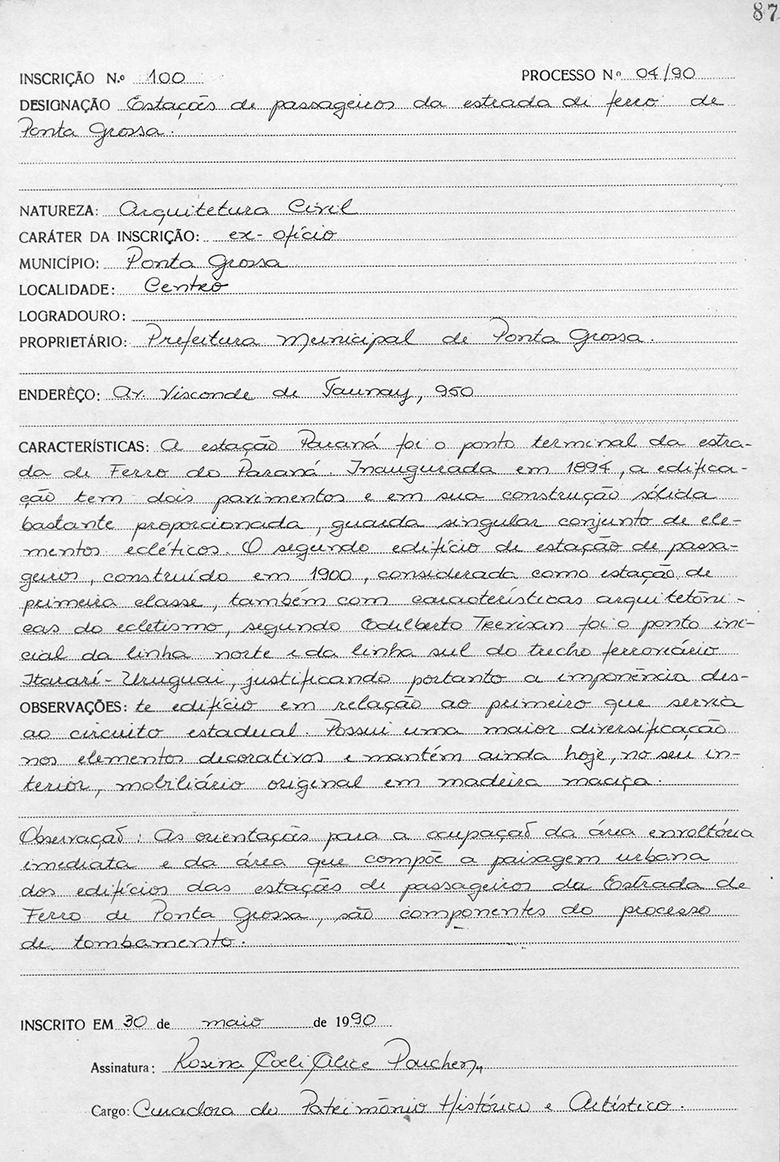 87
INSCRIÇÃO N.º 100 PROCESSO Nº 04/90
DESIGNAÇÃO Estações de passageiros da estrada de ferro de
Ponta Grossa.
NATUREZA: Arquitetura Civil
CARÁTER DA INSCRIÇÃO: ex-ofício
MUNICÍPIO: Ponta Grossa
LOCALIDADE: Centro
LOGRADOURO:
PROPRIETÁRIO: Prefeitura Municipal de Ponta Grossa.
ENDERÊÇO: Av. Visconde de Taunay, 950
CARACTERÍSTICAS: A estação Paraná foi o ponto terminal da estra-
da de Ferro do Paraná. Inaugurada em 1894, a edifica-
ção tem dois pavimentos e em sua construção sólida
bastante proporcionada, guarda singular conjunto de ele-
mentos ecléticos. O segundo edifício de estação de passa-
geiros, construído em 1900, considerada como estação de
primeira classe, também com características arquitetôni-
cas do ecletismo, segundo Edilberto Trevisan foi o ponto ini-
cial da linha norte e da linha sul do trecho ferroviário
Itararé-Uruguai, justificando portanto a imponência des-
OBSERVAÇÕES: te edifício em relação ao primeiro que servia
ao circuito estadual. Possui uma maior diversificação
nos elementos decorativos e mantém ainda hoje, no seu in-
terior, mobiliário original em madeira maciça.
Observação: As orientações para a ocupação da área envoltória
imediata e da área que compõe a paisagem urbana
dos edifícios das estações de passageiros da Estrada de
Ferro de Ponta Grossa, são componentes do processo
de tombamento.
INSCRITO EM 30 de maio de 1990
Assinatura: Rosina Coeli Alice Parchen
Cargo: Curadora do Patrimônio Histórico e Artístico.